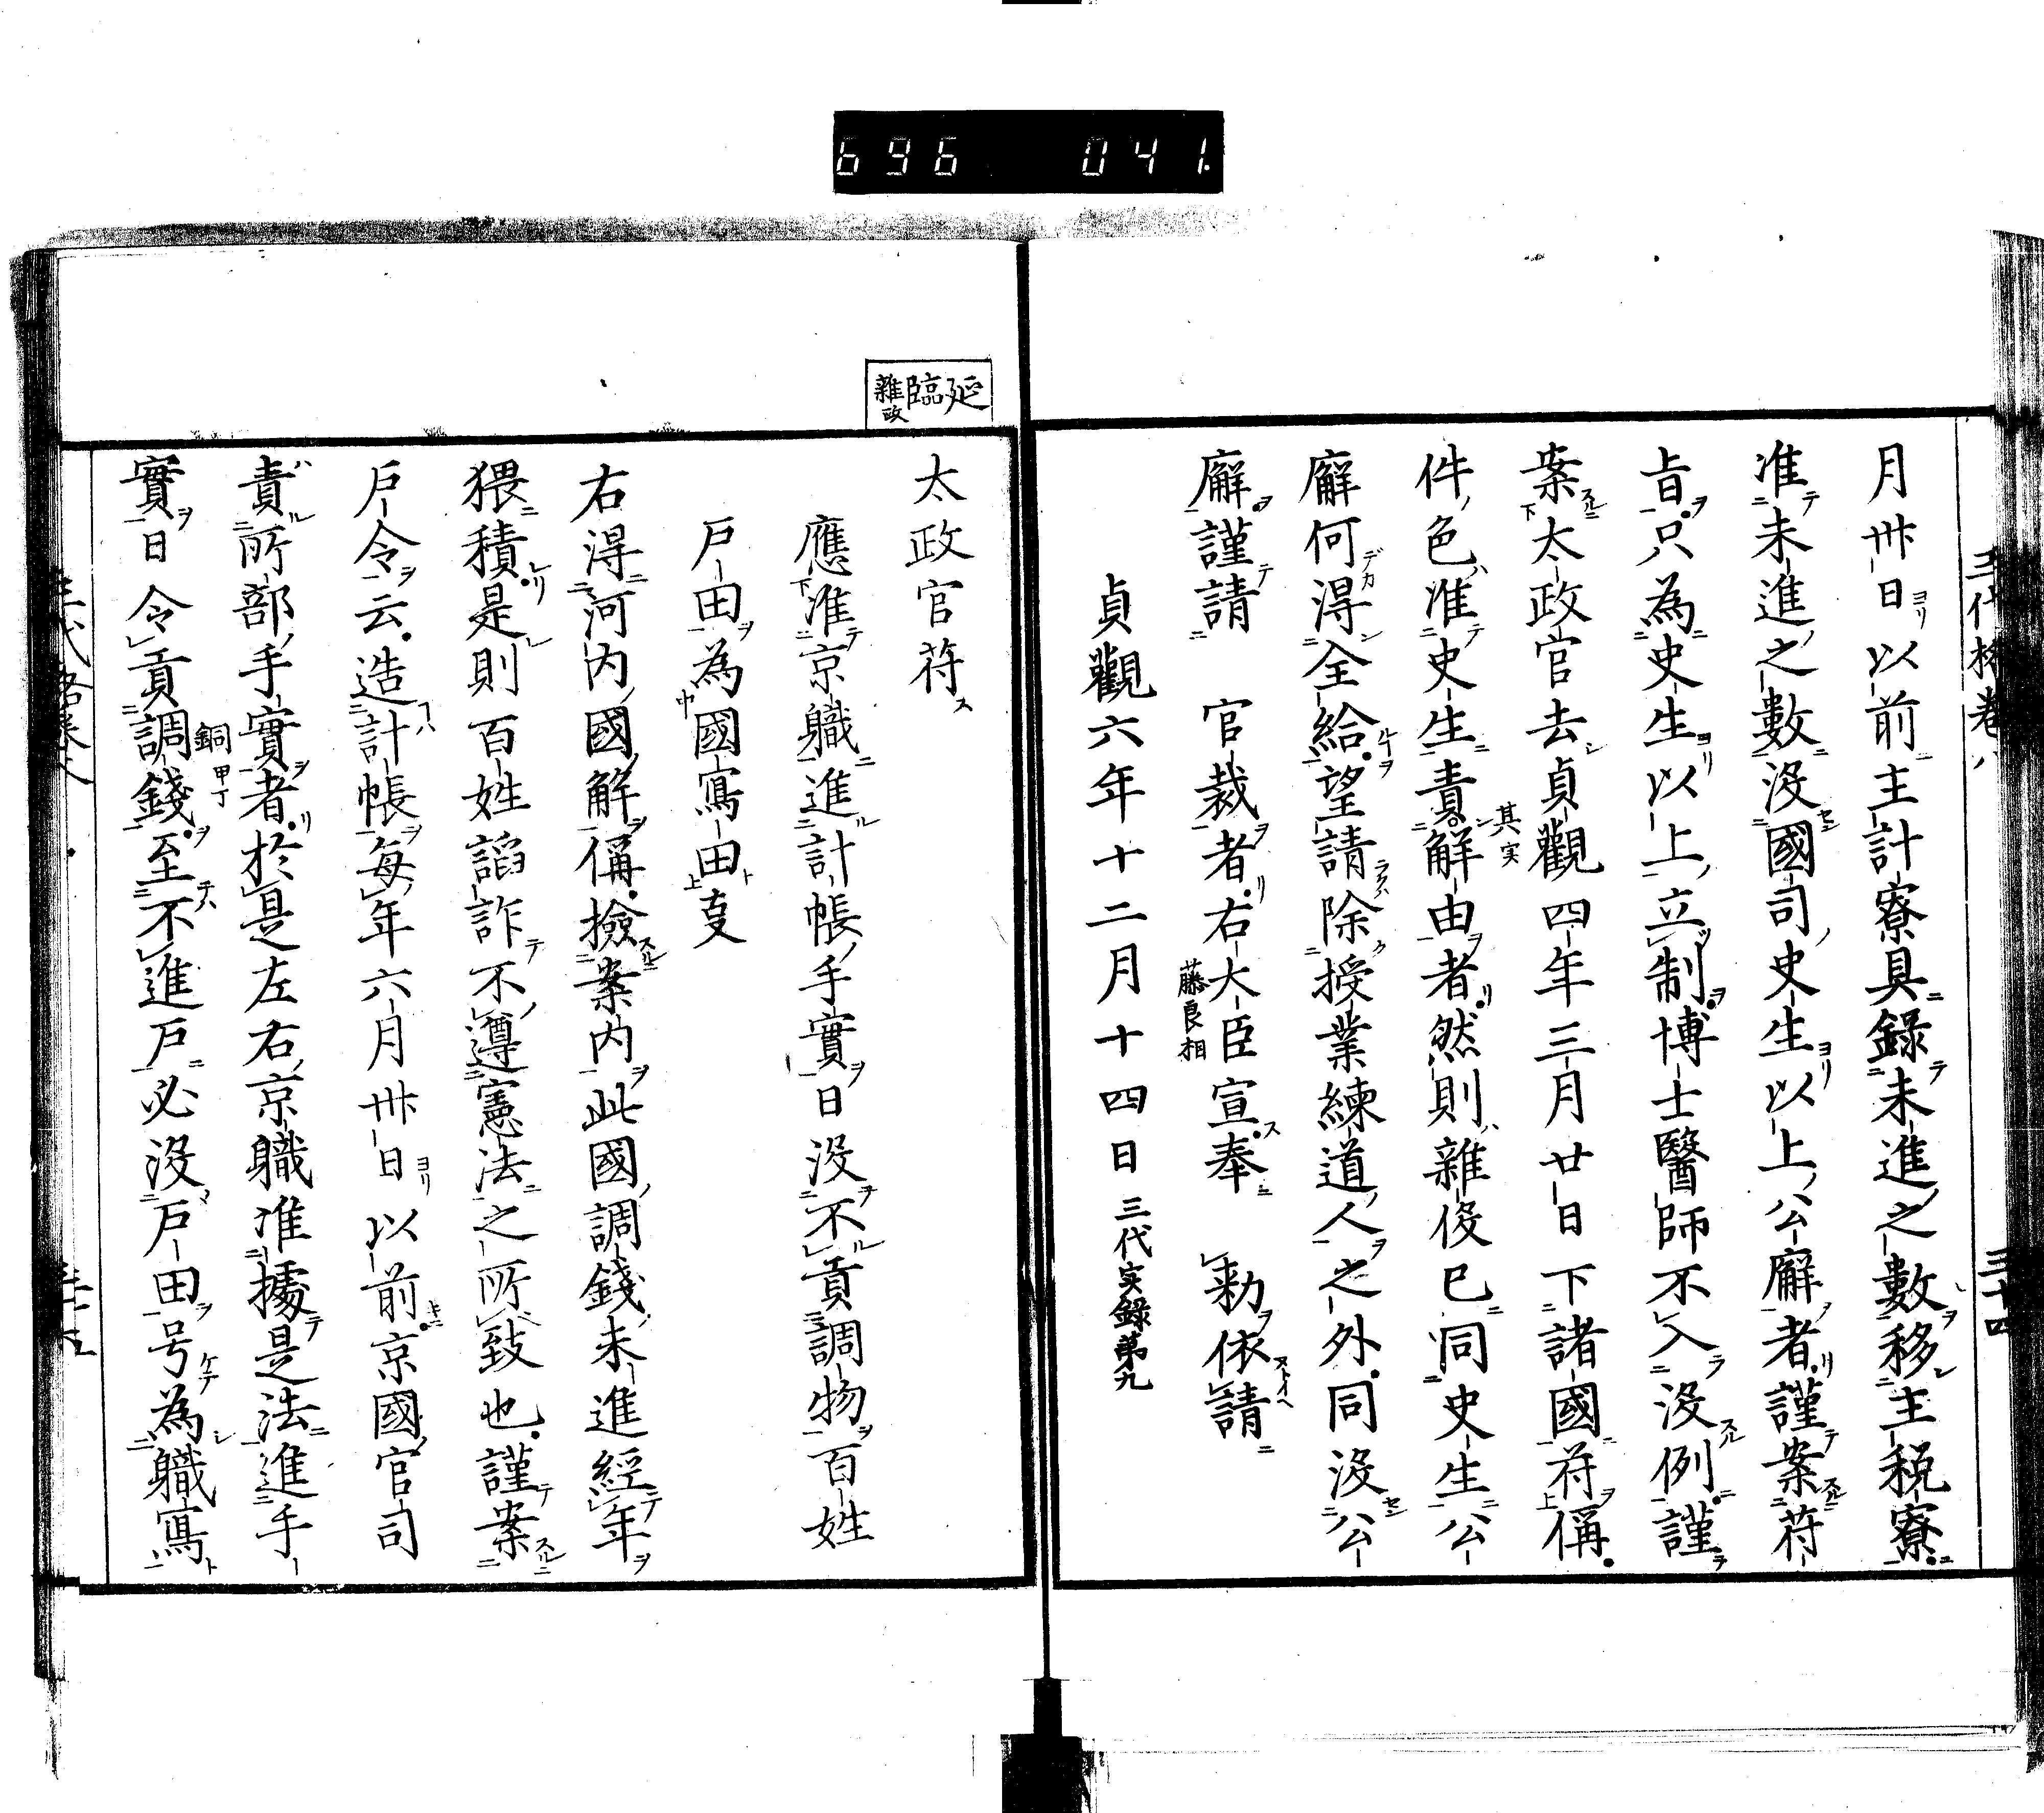 696 041.
三代格巻八
三十四
月卅日以前主計寮具錄未進之數移主税寮
准未進之數没國司史生以上公廨者謹案符
旨只為史生以上立制博士醫師不入没例謹
案太政官去貞觀四年三月廿日下諸國符稱
件色准史生責解由者然則雜伇已同史生公
其实
廨何得全給望請除授業練道人之外同没公
廨謹請 官裁者右大臣宣奉 勅依請
藤良相
貞觀六年十二月十四日 三代实録第九
延臨雜政
太政官符
應准京職進計帳手實日没不貢調物百姓
戸田為國寫田㕝
右得河内國解稱撿案内此國調錢未進經年
猥積是則百姓謟詐不遵憲法之所致也謹案
戸令云造計帳每年六月卅日以前京國官司
責所部手實者於是左右京職准據是法進手
實日令貢調錢至不進戸必没戸田号為職寫
銅甲丁